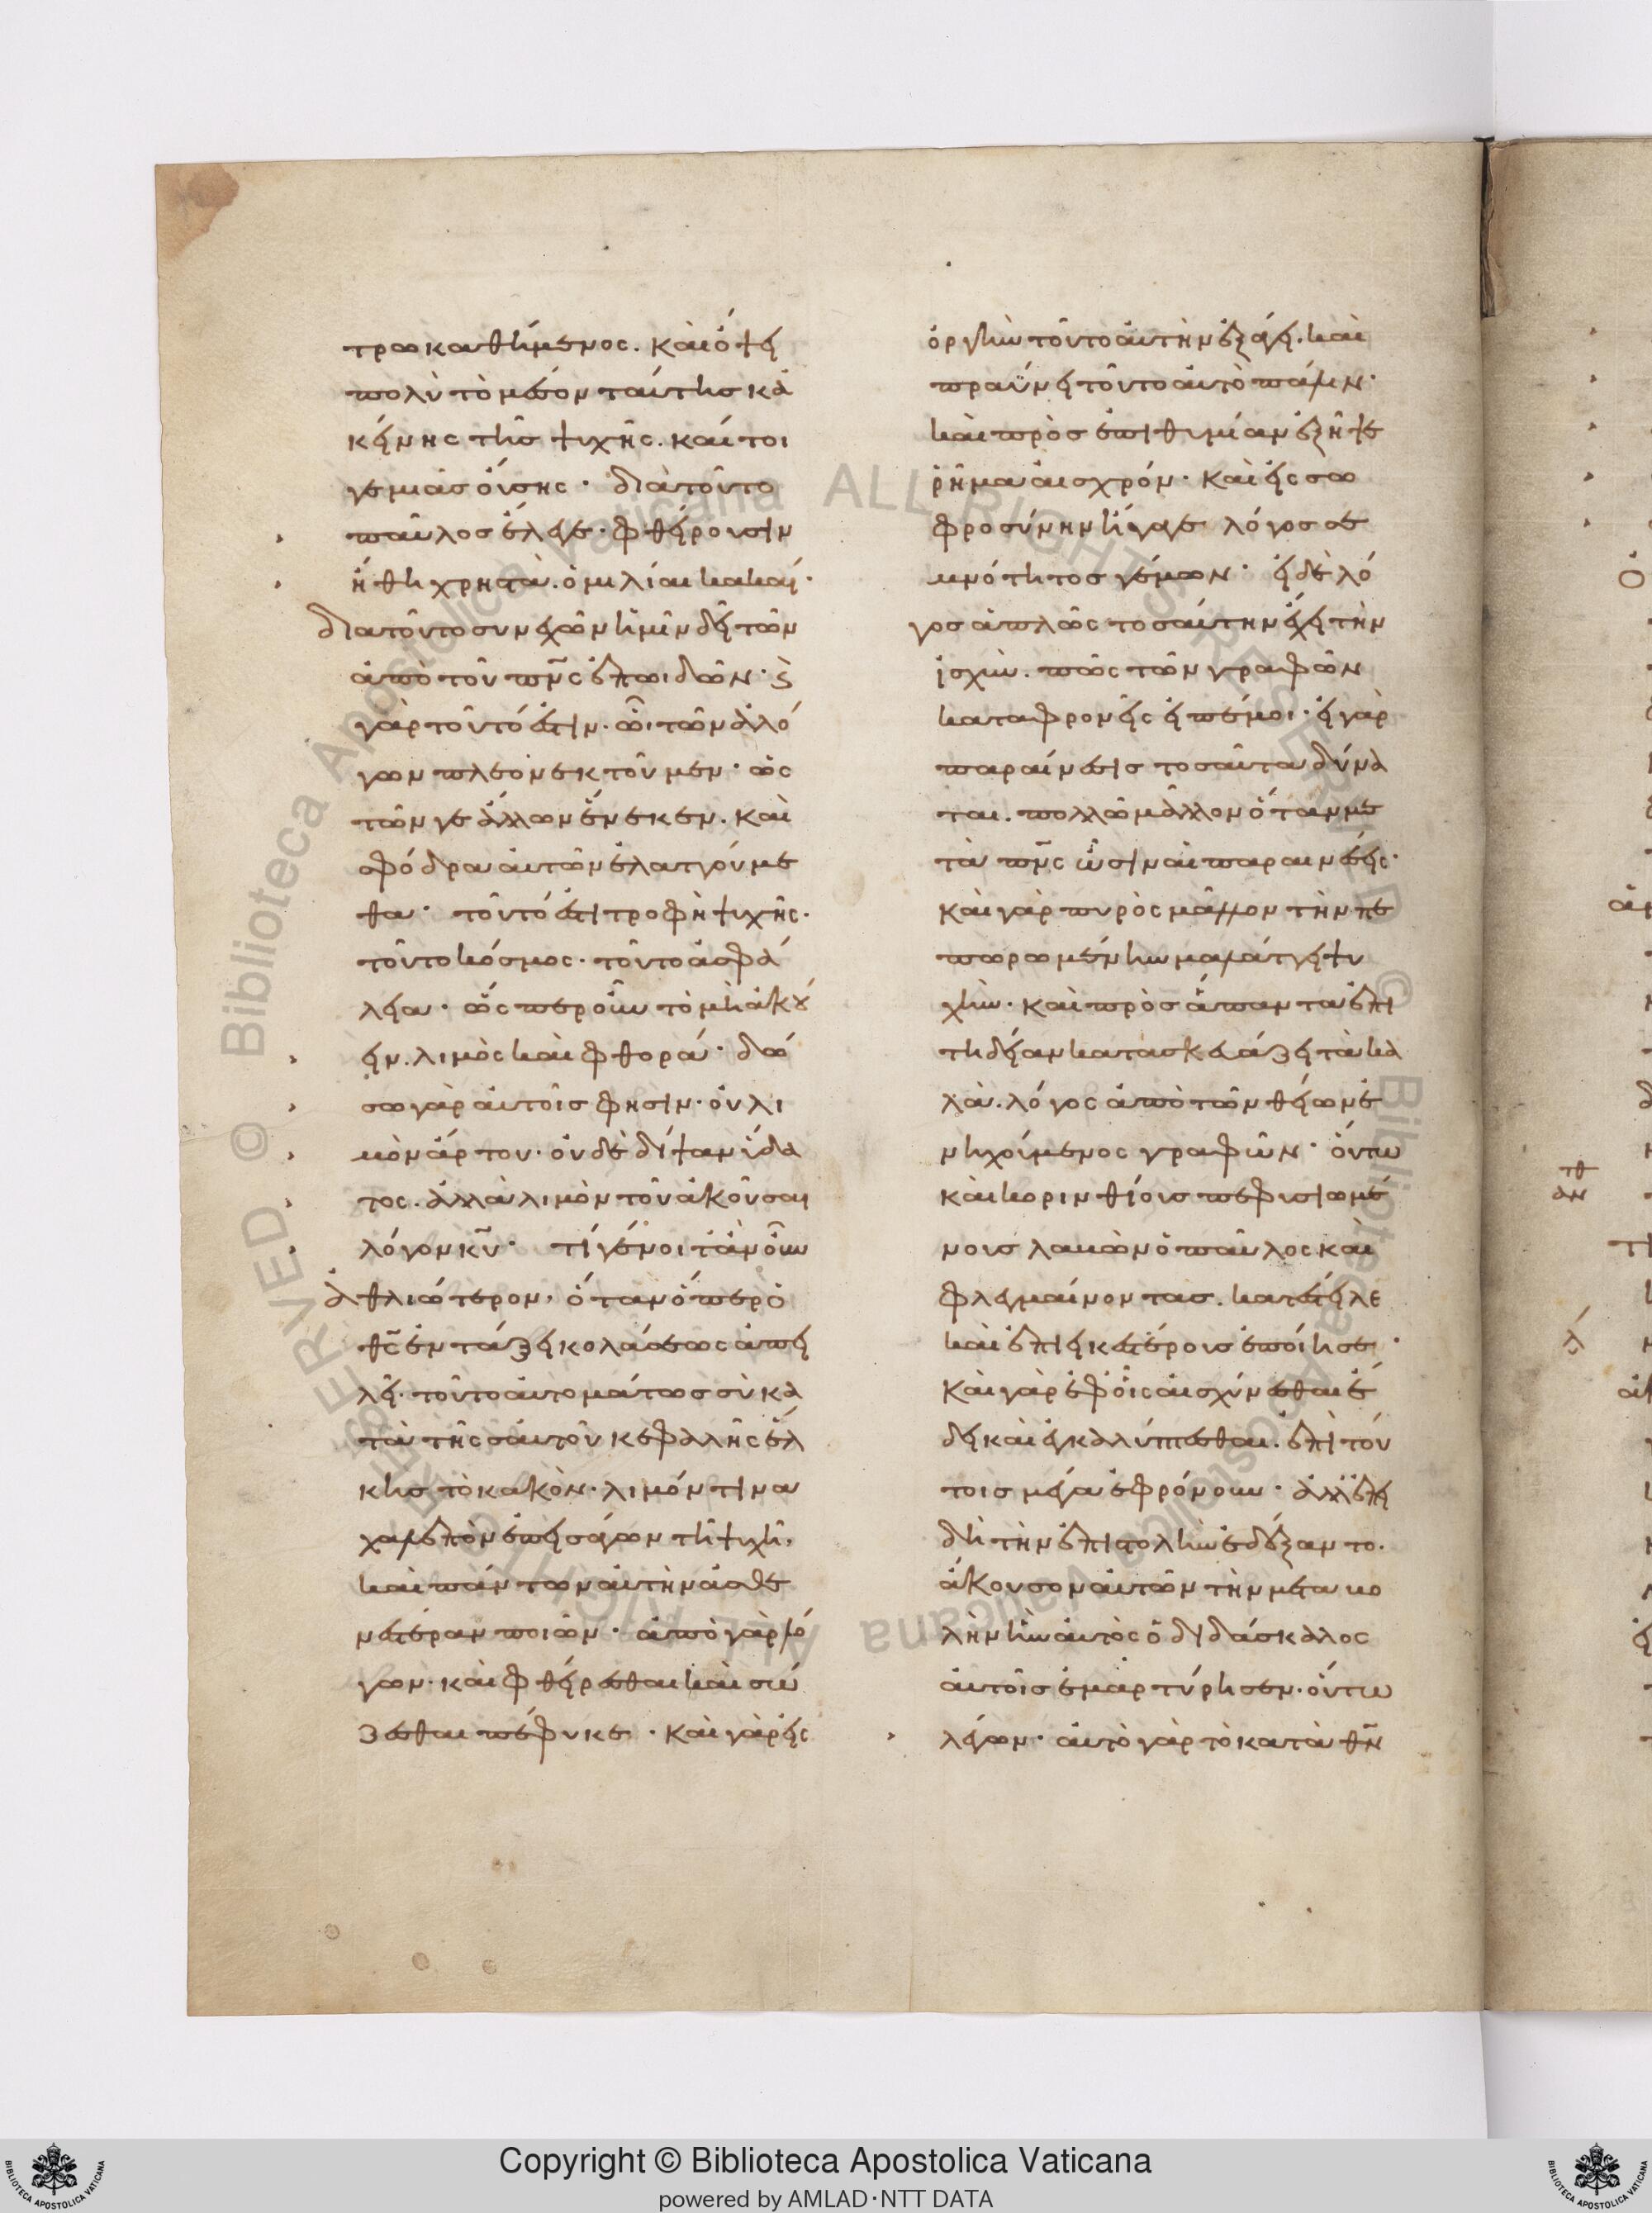 τρω καθήμενος. καὶ ὄψει
πολὺ τὸ μέσον ταύτης κἀ
κείνης τῆς ψυχῆς. καίτοι
γε μιᾶς οὔσης· διὰ τοῦτο
παῦλος ἔλεγε· φθείρουσιν
ἤθη χρηστὰ. ὁμιλίαι κακαί·
διατοῦτο συνεχῶν ἡμῖν δεῖ τῶν
ἀπὸ τοῦ πνς ἐπωιδῶν· ϛ̀
γὰρ τοῦτό ἐστιν. ὧι τῶν ἀλό
γων πλεονεκτοῦμεν· ὡς
τῶν γε ἄλλων ἕνεκεν. καὶ
σφόδρα αὐτῶν ἐλαττούμε
θα· τοῦτό ἐστι τροφὴ ψυχῆς.
τοῦτο κόσμος. τοῦτο ἀσφά
λεια· ὥσπερ οὖν τὸ μὴ ἀκού
ειν. λιμὸς καὶ φθορά· δώ
σω γὰρ αὐτοῖς φησὶν. οὐ λι
μὸν ἄρτου. οὐδὲ δίψαν ὕδα
τος. ἀλλὰ λιμὸν τοῦ ἀκοῦσαι
λόγον κυ· τί γένοιτ' ἂν οὖν
ἀθλιώτερον, ὅταν ὅπερ ὁ
θς ἐν τάξει κολάσεως ἀπει
λεῖ. τοῦτο αὐτομάτως σὺ κα
τὰ τῆς σαυτοῦ κεφαλῆς ἕλ
κης τὸ κακὸν. λιμόν τινα
χαλεπὸν ἐπεισάγων τῆ ψυχῆ,
καὶ πάντων αὐτὴν ἀσθε
νεστέραν ποιῶν· ἀπὸ γὰρ λό
γων. καὶ φθείρεσθαι καὶ σώ
ζεσθαι πέφυκε. καὶ γὰρ εἰς
ὀργὴν τοῦτο αὐτὴν ἐξάγει. καὶ
πραΰνει τοῦτο αὐτὸ πάλιν.
καὶ πρὸς ἐπιθυμίαν ἐξῆψε
ῥῆμα αἰσχρόν. καὶ εἰς σω
φροσύνην ἤγαγε λόγος σε
μνότητος γέμων· εἰ δὲ λό
γος ἁπλῶς τοσαύτην ἔχει τὴν
ἰσχὺν. πῶς τῶν γραφῶν
καταφρονεῖς εἰπέ μοι. εἰ γὰρ
παραίνεσις τοσαῦτα δύνα
ται. πολλῶ μᾶλλον ὅταν με
τὰ πνς ὦσιν αἱ παραινέσεις.
καὶ γὰρ πυρὸς μᾶλλον τὴν πε
πωρωμένην μαλάττει ψυ
χὴν. καὶ πρὸς ἅπαντα ἐπι
τηδείαν κατασκευάζει τὰ κα
λὰ. λόγος ἀπὸ τῶν θείων ἐ
νηχούμενος γραφῶν· οὕτω
καὶ κορινθίους πεφυσιωμέ
νους λαβὼν ὁ παῦλος καὶ
φλεγμαίνοντας. κατέστειλε
καὶ ἐπιεικεστέρους ἐποίησε.
καὶ γὰρ ἐφ' οἷς αἰσχύνεσθαι ἔ
δει καὶ ἐγκαλύπτεσθαι. ἐπὶ τού
τοις μέγα ἐφρόνουν· ἀλλ' ἐπει
δὴ τὴν ἐπιστολὴν ἐδέξαντο.
ἄκουσον αὐτῶν τὴν μεταβο
λὴν ἣν αὐτὸς ὁ διδάσκαλος
αὐτοῖς ἐμαρτύρησεν. οὕτω
λέγων· αὐτὸ γὰρ τὸ κατὰ θν
Copyright © Biblioteca Apostolica Vaticana
powered by AMLAD·NTT DATA